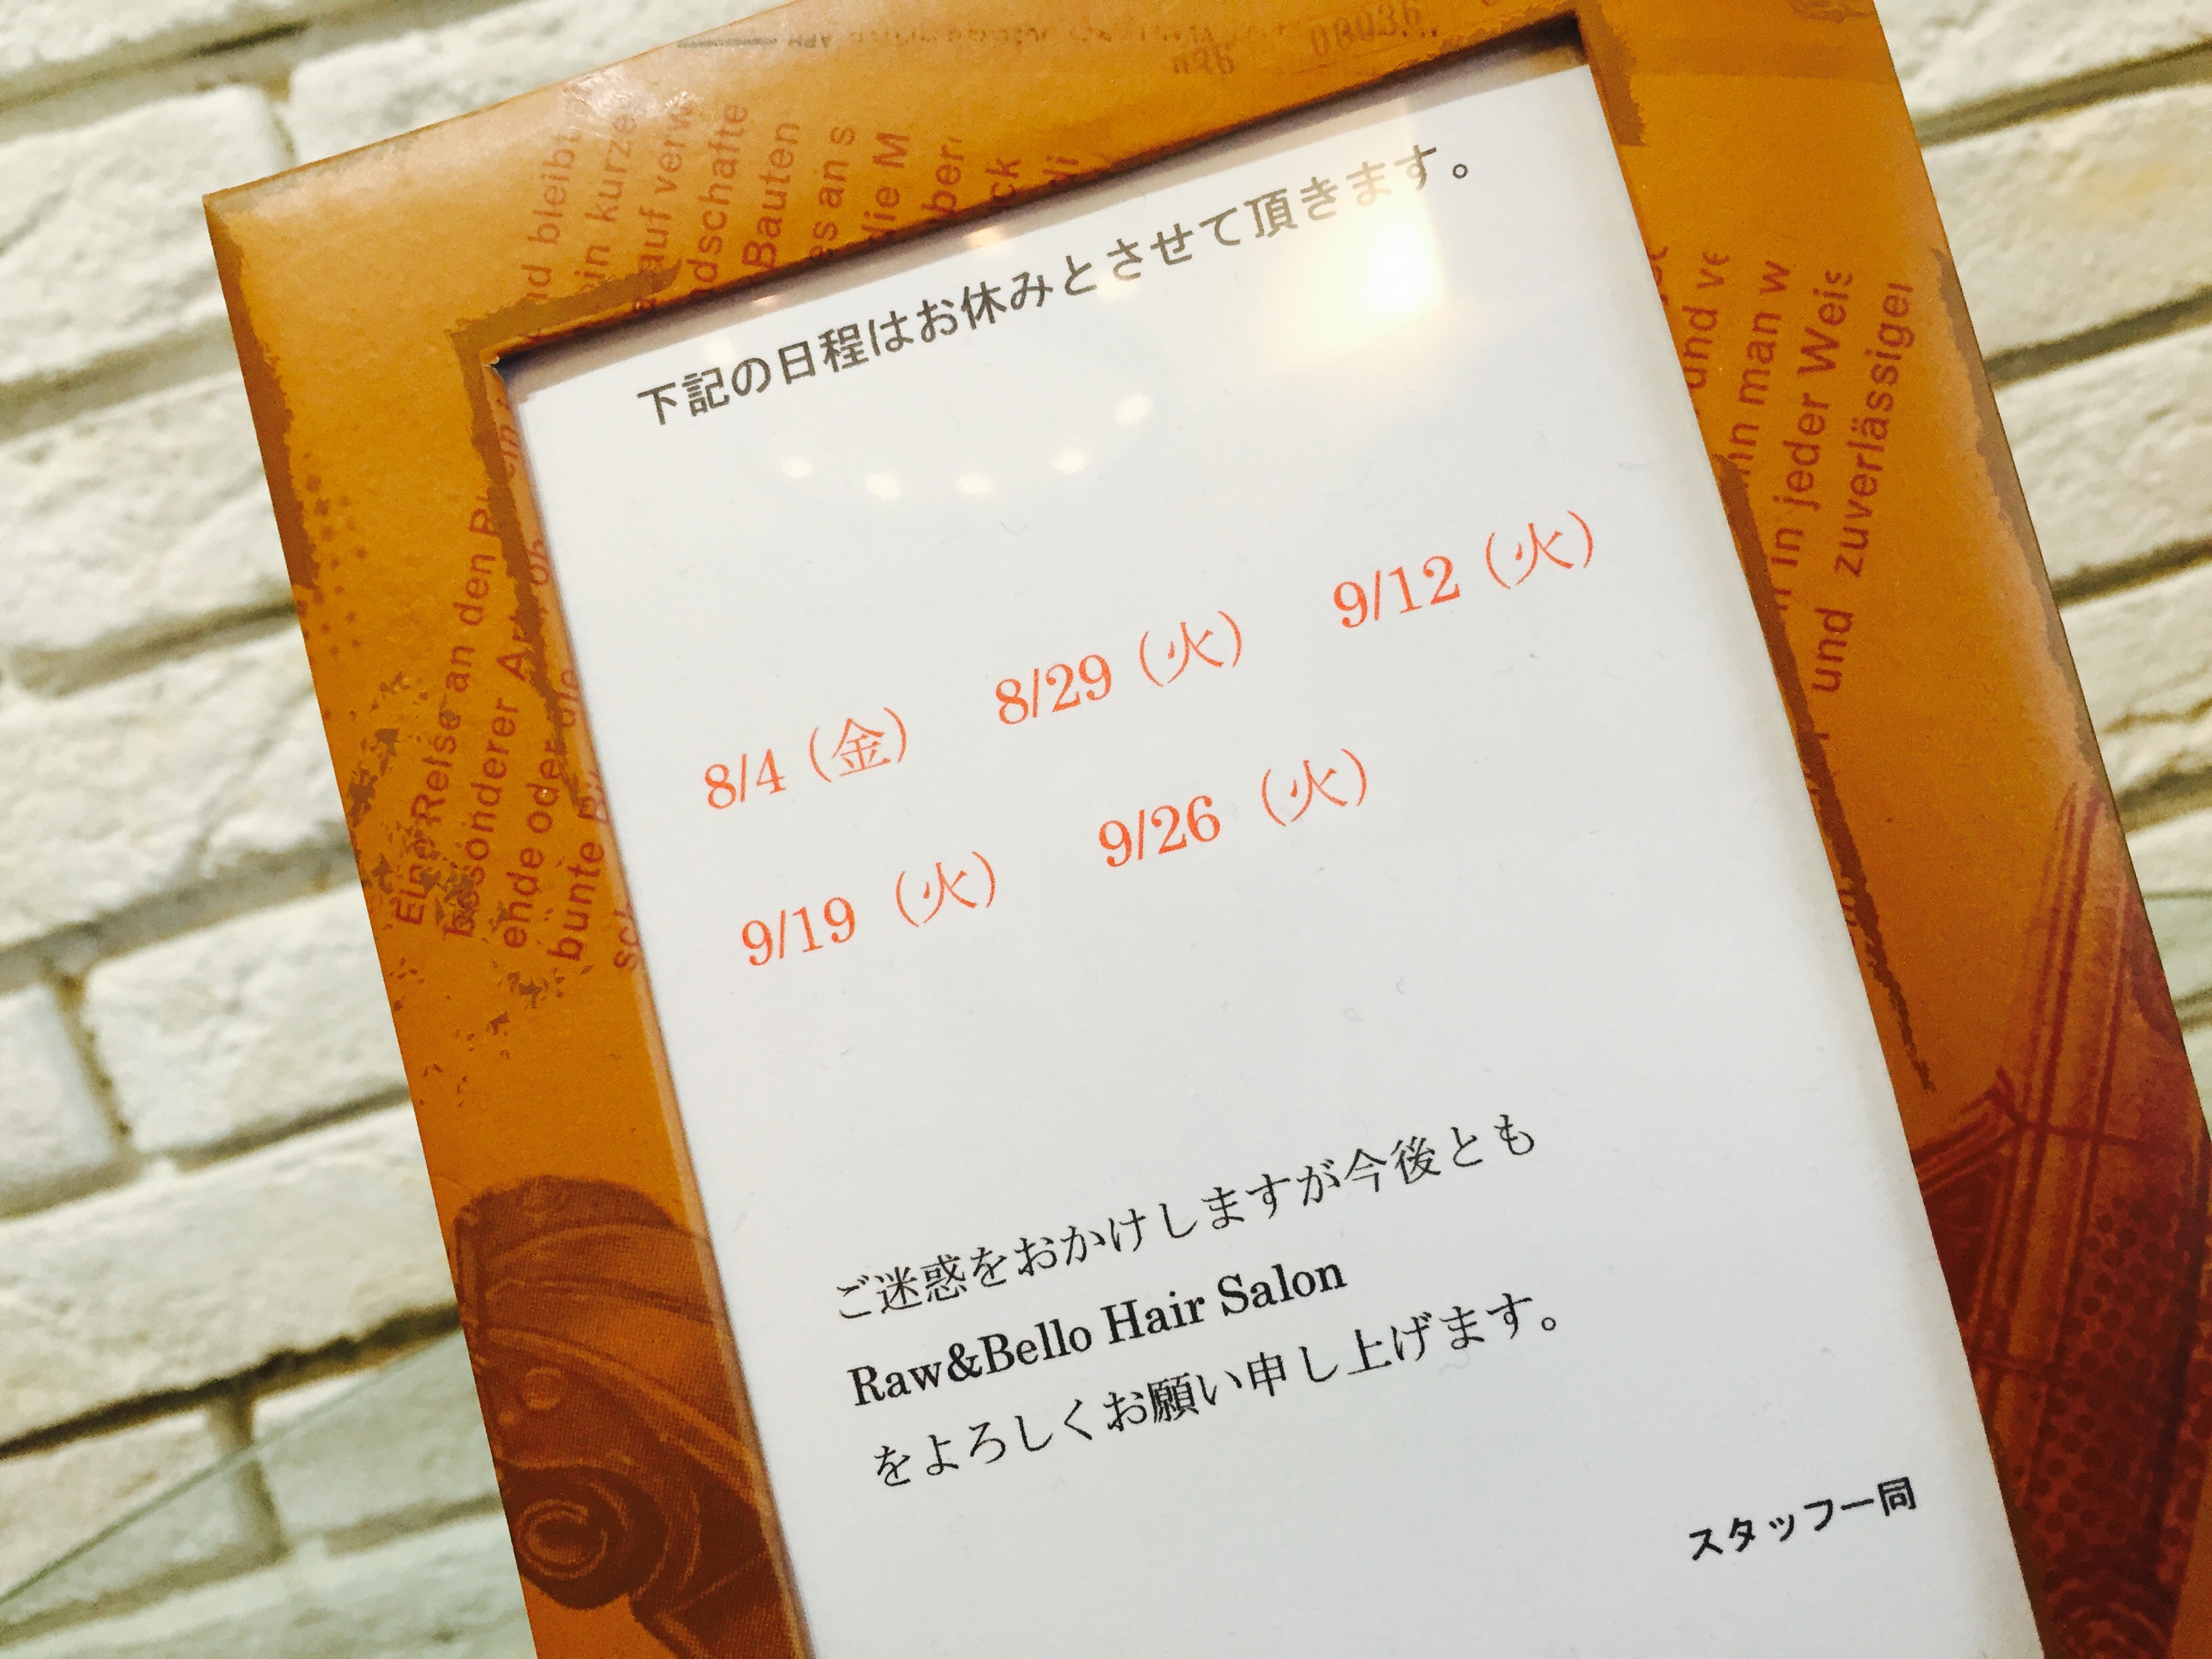 下記の日程はお休みとさせて頂きます。
8/4（金） 8/29（火） 9/12（火）
9/19（火） 9/26（火）
ご迷惑をおかけしますが今後とも
Raw&Bello Hair Salon
をよろしくお願い申し上げます。
スタッフ一同
bleibt
in kurze
auf verw
dschafte
Bauten
es an s
die M
ber
ck
di
Eine Reise an den
besonderer Art
ende oder die
bunte
sch
und ve
man w
in jeder Weis
und zuverlässiger